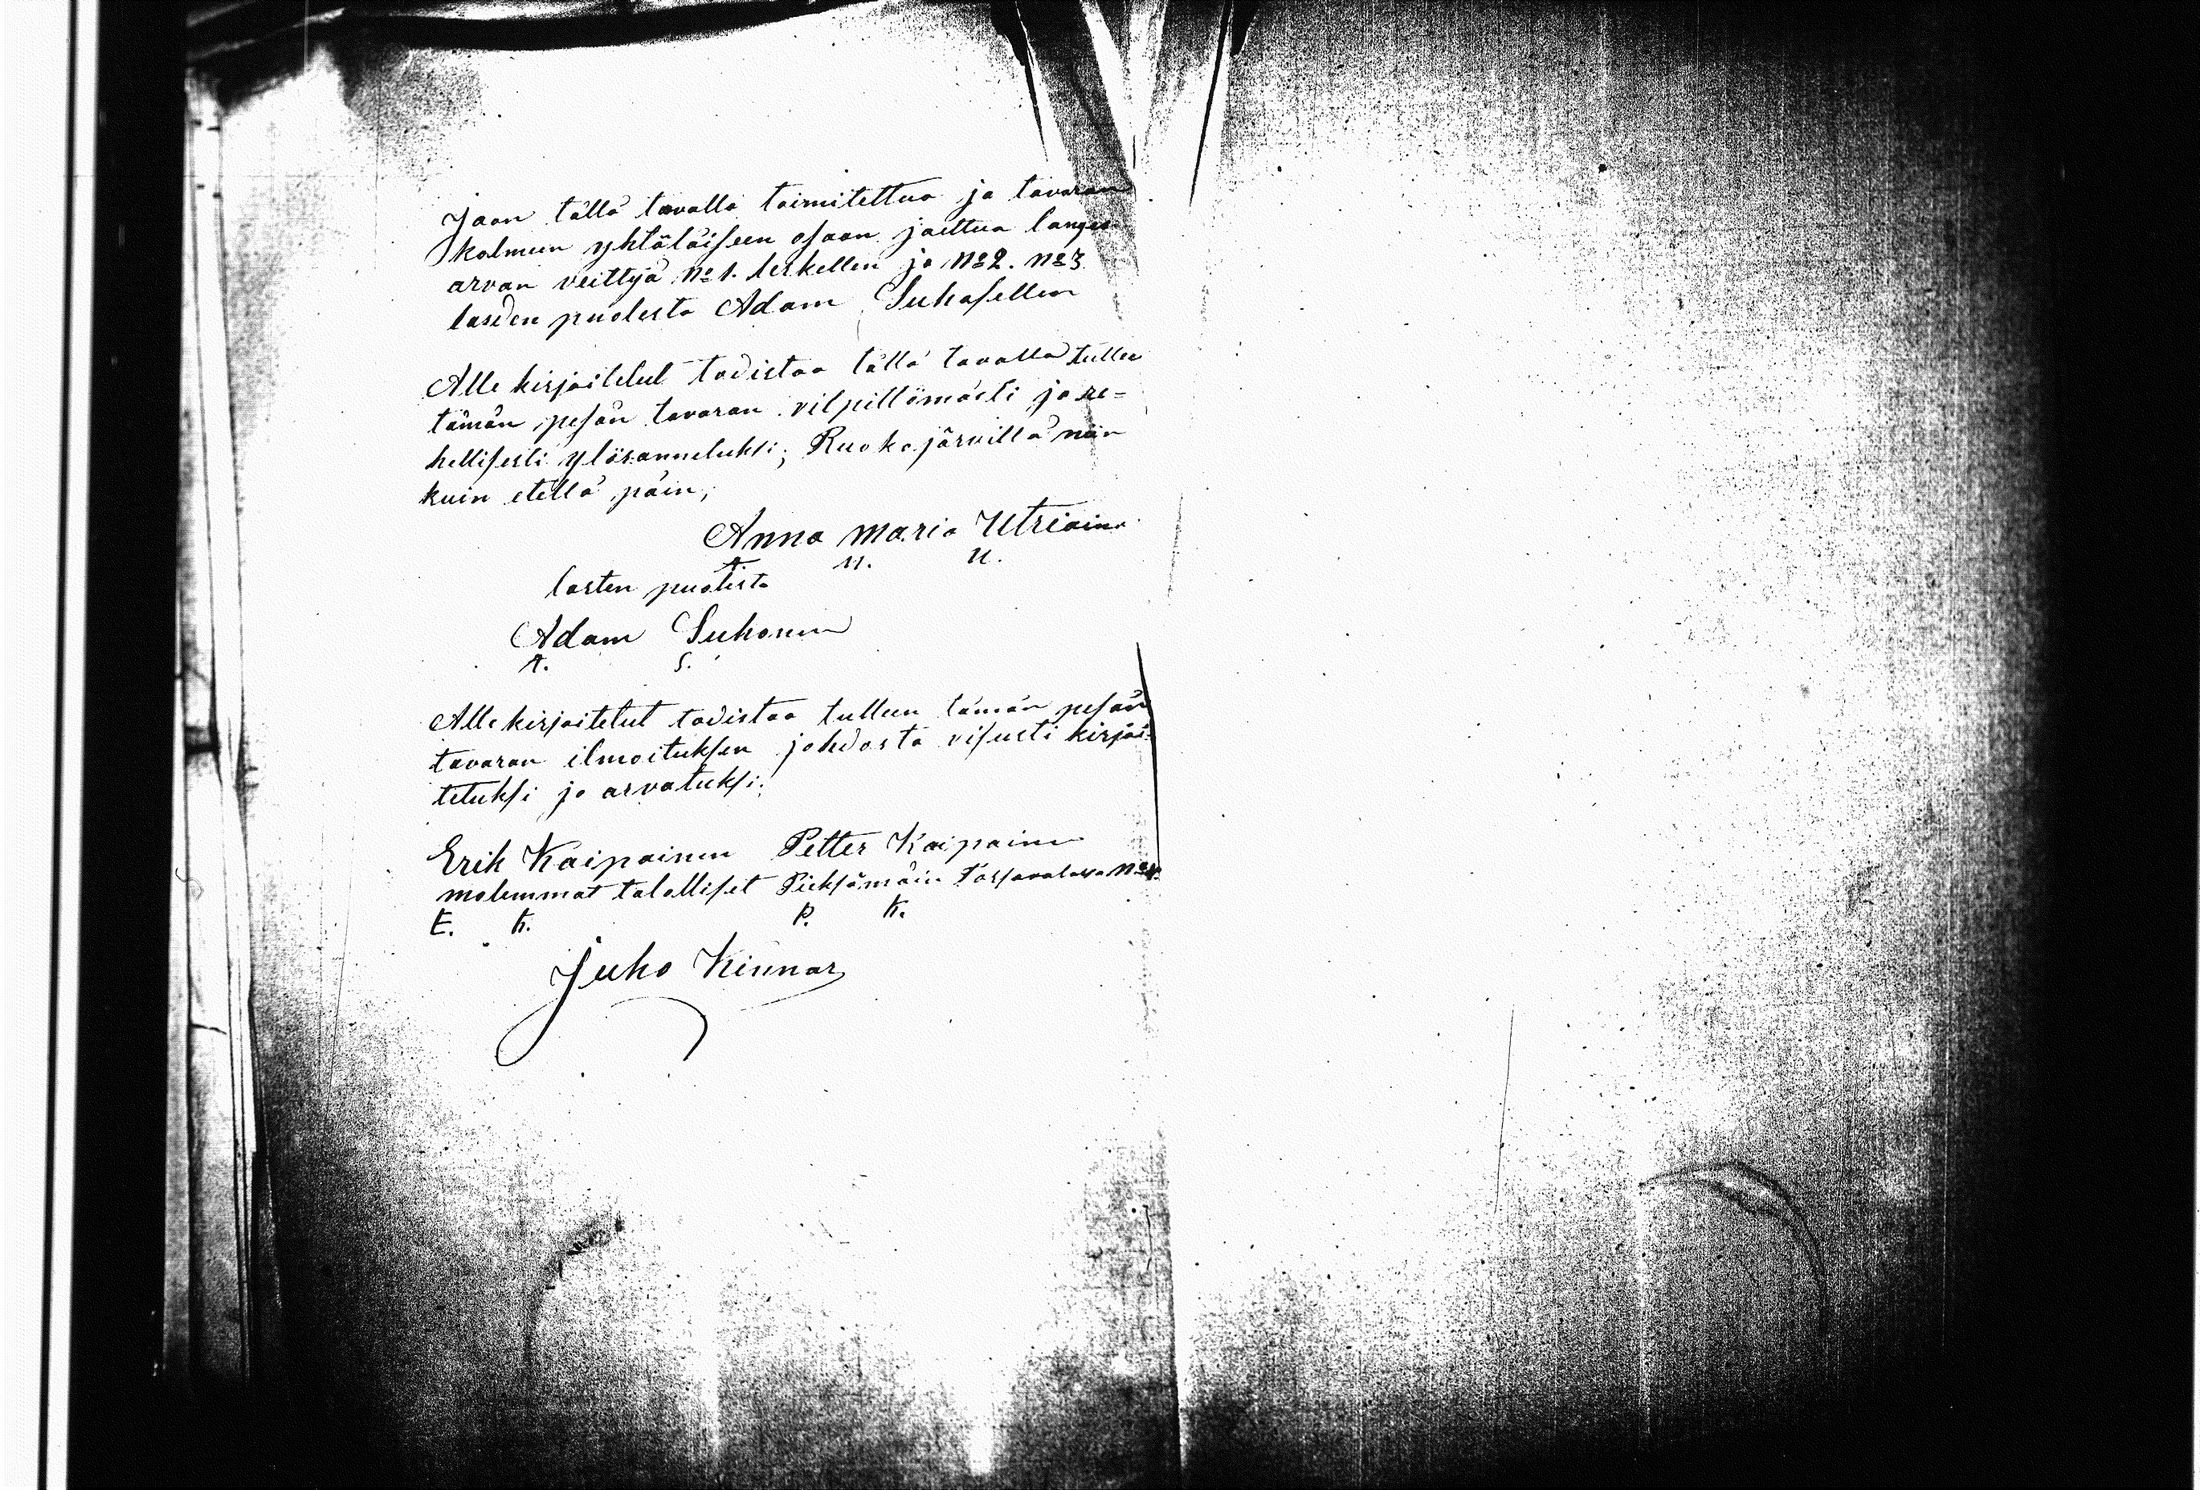 Jaon tällä tavalla toimitettua ja tavaran
kolmeen yhtäläiseen osaan jaettua langes
arvan veittyä No 1. leskellen ja No 2. No 3
lasden puolesta Adam Suhosellen
Allekirjoitetut todistaa tällä tavalla tullen
tämän pesän tavaran vilpittömästi ja re=
hellisesti ylösannetuksi; Ruokojärvillä niin
kuin etellä päin;
Anna Maria Utriain
A. M. U.
lasten puolesta
Adam Suhonen
A. S.
Allekirjoitetut todistaa tulleen tämän pesän
tavaran ilmoituksen johdosta visusti kirjoi=
tetuksi ja arvatuksi;
Erik Kaipainen Petter Kaipainen
molemmat talolliset Pieksämäin
E. K. P. K.
Juho Kinnar